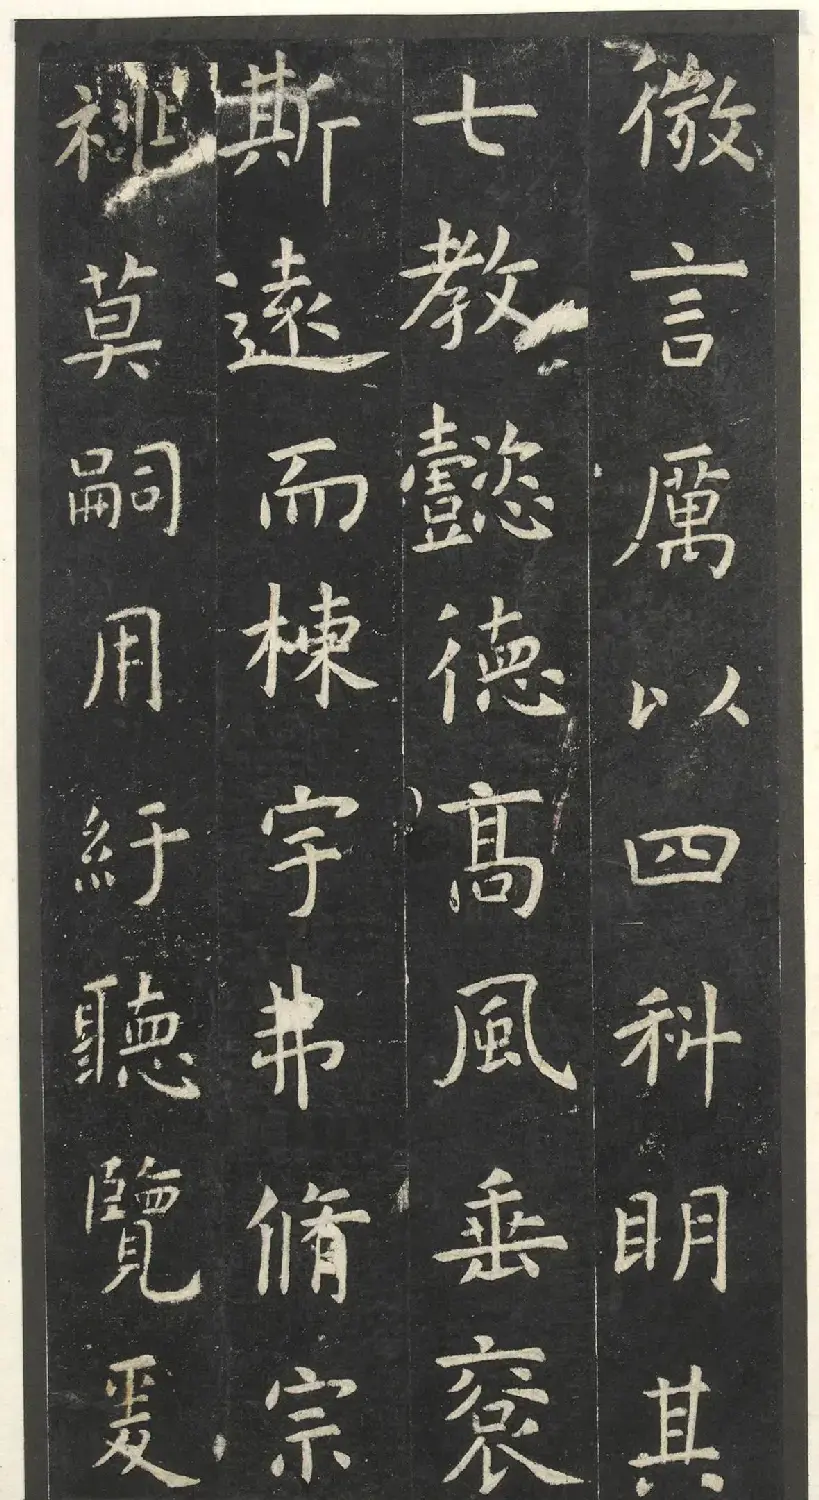 微言厲以四科明其
七教懿德高風垂裒
斯遠而棟宇弗脩宗
祧莫嗣用紆聽覽爰